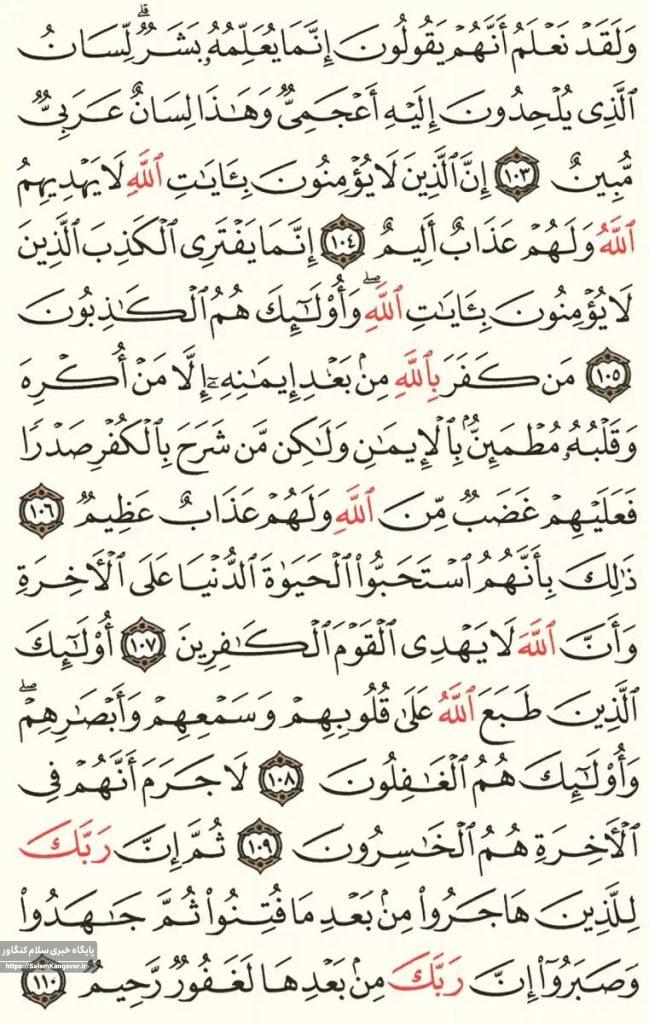 وَلَقَدْ نَعْلَمُ أَنَّهُمْ يَقُولُونَ إِنَّمَا يُعَلِّمُهُۥ بَشَرٌۗ لِّسَانُ
ٱلَّذِى يُلْحِدُونَ إِلَيْهِ أَعْجَمِىٌّ وَهَـٰذَا لِسَانٌ عَرَبِىٌّ
مُّبِينٌ ١٠٣ إِنَّ ٱلَّذِينَ لَا يُؤْمِنُونَ بِـَٔايَـٰتِ ٱللَّهِ لَا يَهْدِيهِمُ
ٱللَّهُ وَلَهُمْ عَذَابٌ أَلِيمٌ ١٠٤ إِنَّمَا يَفْتَرِى ٱلْكَذِبَ ٱلَّذِينَ
لَا يُؤْمِنُونَ بِـَٔايَـٰتِ ٱللَّهِۖ وَأُو۟لَـٰٓئِكَ هُمُ ٱلْكَـٰذِبُونَ
١٠٥ مَن كَفَرَ بِٱللَّهِ مِنۢ بَعْدِ إِيمَـٰنِهِۦٓ إِلَّا مَنْ أُكْرِهَ
وَقَلْبُهُۥ مُطْمَئِنٌّۢ بِٱلْإِيمَـٰنِ وَلَـٰكِن مَّن شَرَحَ بِٱلْكُفْرِ صَدْرًا
فَعَلَيْهِمْ غَضَبٌ مِّنَ ٱللَّهِ وَلَهُمْ عَذَابٌ عَظِيمٌ ١٠٦
ذَٰلِكَ بِأَنَّهُمُ ٱسْتَحَبُّوا۟ ٱلْحَيَوٰةَ ٱلدُّنْيَا عَلَى ٱلْـَٔاخِرَةِ
وَأَنَّ ٱللَّهَ لَا يَهْدِى ٱلْقَوْمَ ٱلْكَـٰفِرِينَ ١٠٧ أُو۟لَـٰٓئِكَ
ٱلَّذِينَ طَبَعَ ٱللَّهُ عَلَىٰ قُلُوبِهِمْ وَسَمْعِهِمْ وَأَبْصَـٰرِهِمْۖ
وَأُو۟لَـٰٓئِكَ هُمُ ٱلْغَـٰفِلُونَ ١٠٨ لَا جَرَمَ أَنَّهُمْ فِى
ٱلْـَٔاخِرَةِ هُمُ ٱلْخَـٰسِرُونَ ١٠٩ ثُمَّ إِنَّ رَبَّكَ
لِلَّذِينَ هَاجَرُوا۟ مِنۢ بَعْدِ مَا فُتِنُوا۟ ثُمَّ جَـٰهَدُوا۟
وَصَبَرُوٓا۟ إِنَّ رَبَّكَ مِنۢ بَعْدِهَا لَغَفُورٌ رَّحِيمٌ ١١٠
پایگاه خبری سلام کنگاور
https://SalamKangavar.ir